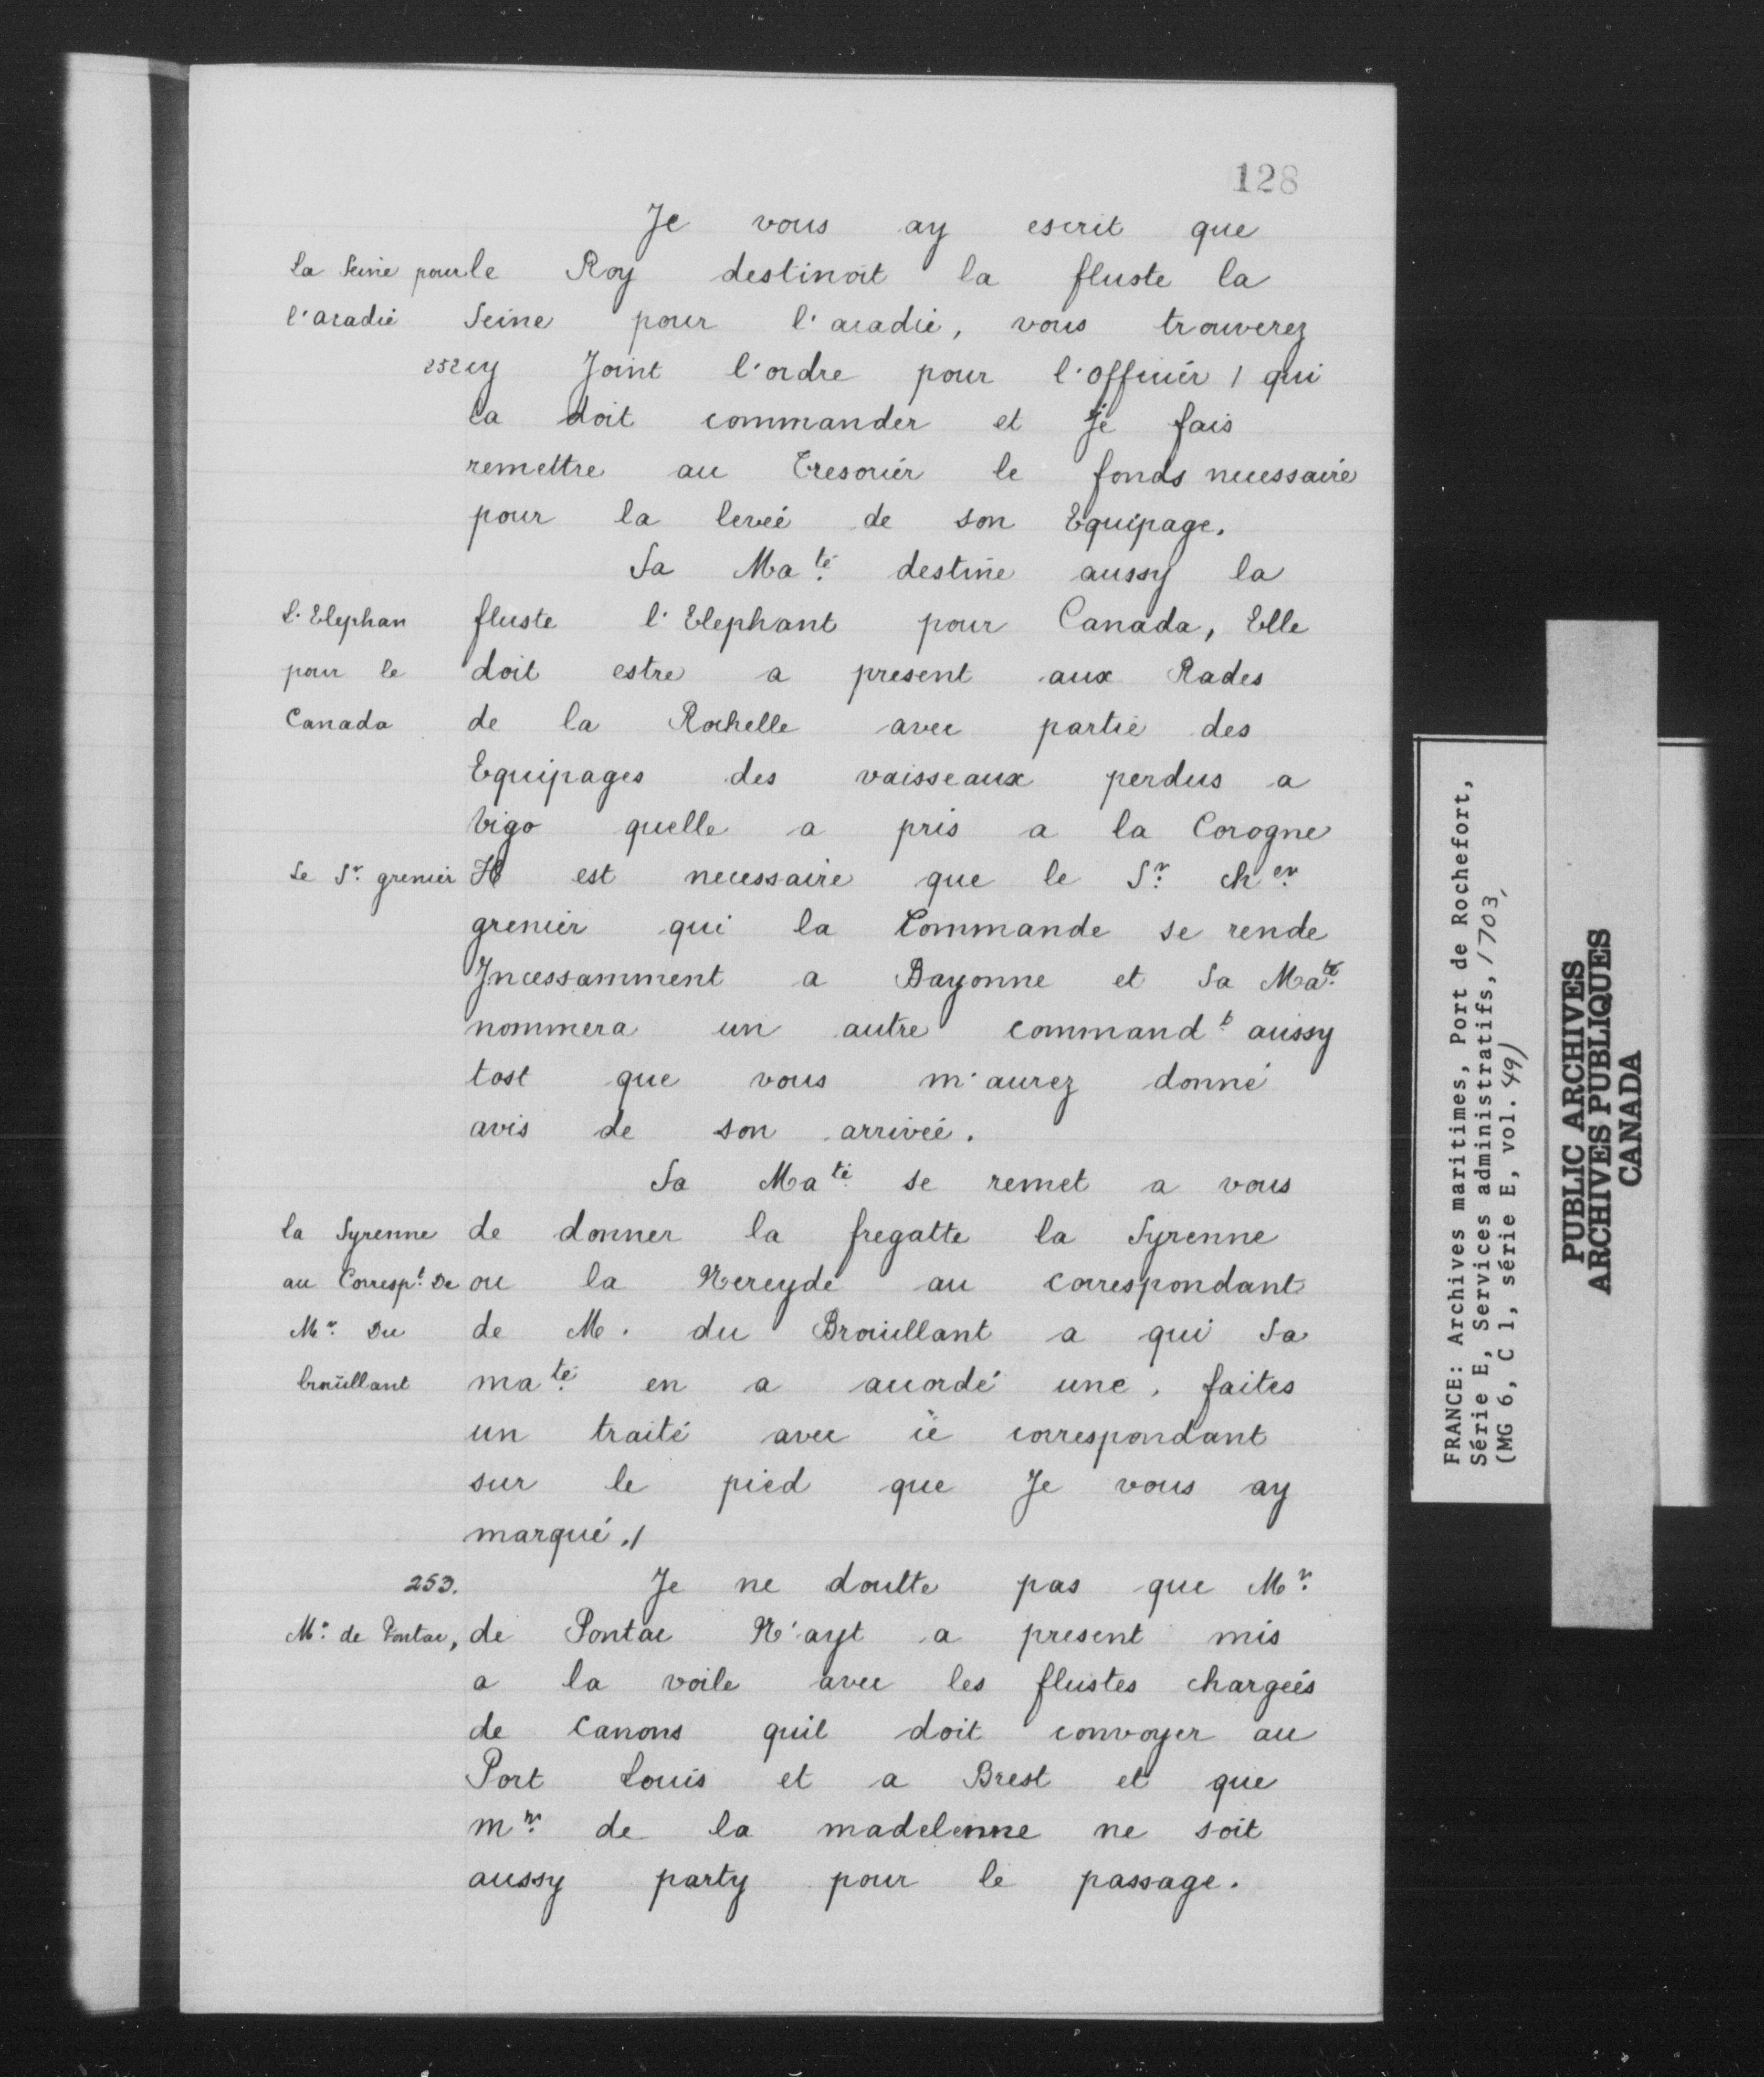 128
Je vous ay escrit que
La Seine pour le Roy destinoit la fluste la
l'acadie Seine pour l'acadie, vous trouverez
252 cy Joint l'ordre pour l'officier / qui
la doit commander et Je fais
remettre au Tresorier le fonds necessaire
pour la leveé de son Equipage.
Sa Maté destine aussy la
L'Elephan fluste l'Elephant pour Canada, Elle
pour le doit estre a present aux Rades
Canada de la Rochelle avec partie des
Equipages des vaisseaux perdus a
Vigo quelle a pris a la Corogne
Le Sr. grenier Il est necessaire que le Sr. cher.
grenier qui la Commande se rende
Jncessamment a Bayonne et Sa Maté
nommera un autre commandt. aussy
tost que vous m'aurez donné
avis de son arriveé.
Sa Maté se remet a vous
la Syrenne de donner la fregatte la Syrenne
au Correspt. De ou la Nereyde au correspondant
Mr. Du de M. du Broüillant a qui Sa
broüillant maté en a acordé une, faites
un traité avec ce correspondant
sur le pied que Je vous ay
marqué ./
253. Je ne doutte pas que Mr.
Mr. de Pontac, de Pontac N'ayt a present mis
a la voile avec les flustes chargeés
de Canons quil doit convoyer au
Port Louis et a Brest et que
mr. de la madelenne ne soit
aussy party pour le passage.
FRANCE: Archives maritimes, Port de Rochefort,
Série E, Services administratifs, 1703,
(MG 6, C 1, série E, vol. 49)
PUBLIC ARCHIVES
ARCHIVES PUBLIQUES
CANADA